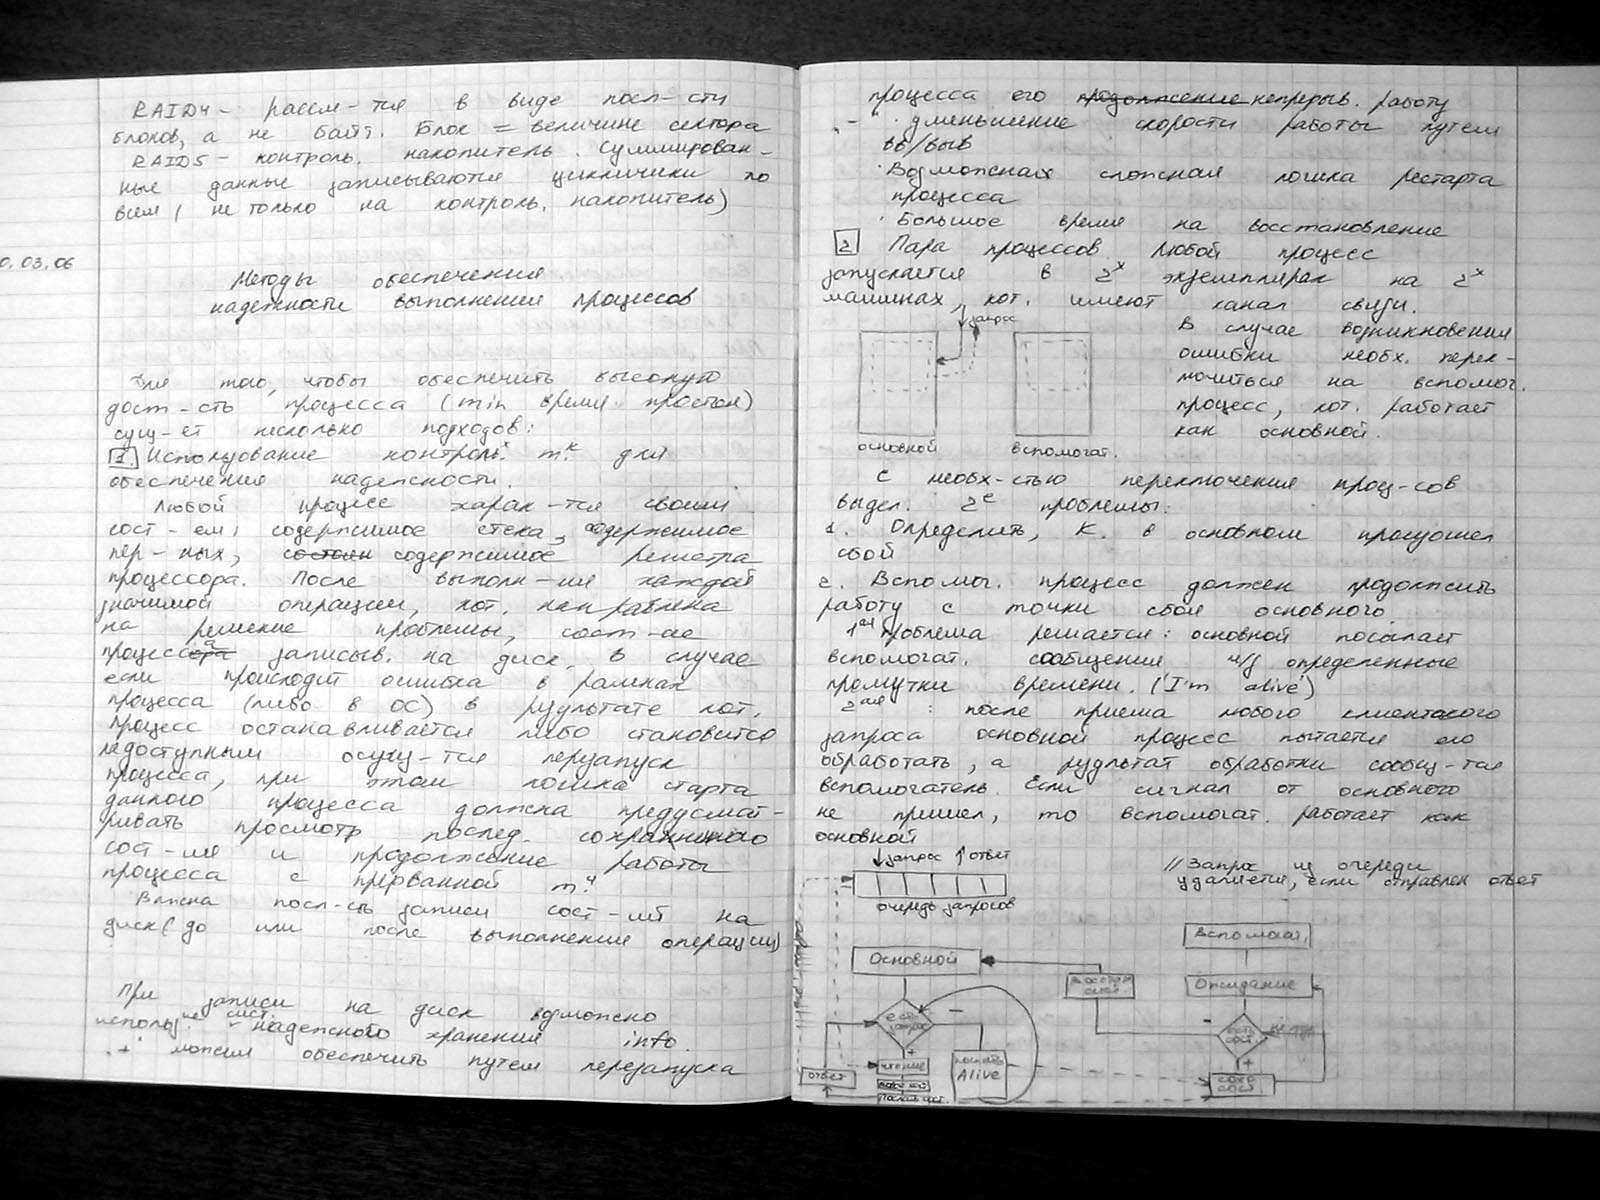 RAID4 - рассм-тся в виде посл-сти
блоков, а не байт. Блок = величине сектора
RAID5 - контроль. накопитель. Суммирован-
ные данные записываются циклически по
всем ( не только на контроль. накопитель)
0.03.06
Методы обеспечения
надежности выполнения процессов
Для того, чтобы обеспечить высокую
дост-сть процесса (min время простоя)
сущ-ет несколько подходов:
1. Использование контроль.х т.к для
обеспечения надежности.
Любой процесс харак-тся своим
сост-ем: содержимое стека, содержимое
пер-ных, содержимое регистра
процессора. После выполн-ия каждой
значимой операции, кот. направлена
на решение проблемы, сост-ие
процесса записыв. на диск. В случае
если происходит ошибка в рамках
процесса (либо в ОС) в результате кот.
процесс останавливается либо становится
недоступным осущ-тся перезапуск
процесса, при этом логика старта
данного процесса должна предусмат-
ривать просмотр послед. сохраненного
сост-ия и продолжение работы
процесса с прерванной т.ч
Важна посл-сть записи сост-ий на
диск( до или после выполнения операции)
При записи на диск возможно
использ-ие сист. надежного хранения info.
"+" можем обеспечить путем перезапуска
процесса его продолжение непрерыв. работу
"-" · уменьшение скорости работы путем
вв/выв
· Возможная сложная логика рестарта
процесса
· Большое время на восстановление
2 Пара процессов Любой процесс
запускается в 2х экземплярах на 2х
машинах, кот. имеют канал связи.
запрос
основной вспомогат.
В случае возникновения
ошибки необх. перек-
лючиться на вспомог.
процесс, кот. работает
как основной.
С необх-стью переключения проц-сов
выдел. 2е проблемы:
1. Определить, К. в основном произошел
сбой
2. Вспомог. процесс должен продолжить
работу с точки сбоя основного.
1ая проблема решается: основной посылает
вспомогат. сообщения ч/з определенные
промутки времени. ('I'm alive')
2ая : после приема любого клиентского
запроса основной процесс пытается его
обработать, а результат обработки сообщ-тся
вспомогатель. Если сигнал от основного
не пришел, то вспомогат. работает как
основной
↓запрос ↑ответ
очередь запросов
// Запрос из очереди
удаляется, если отправлен ответ
Основной
есть запрос
-
+
чтение
послать Alive
ответ
Вспомогат.
Ожидание
есть сост.
-
+
сохр сост